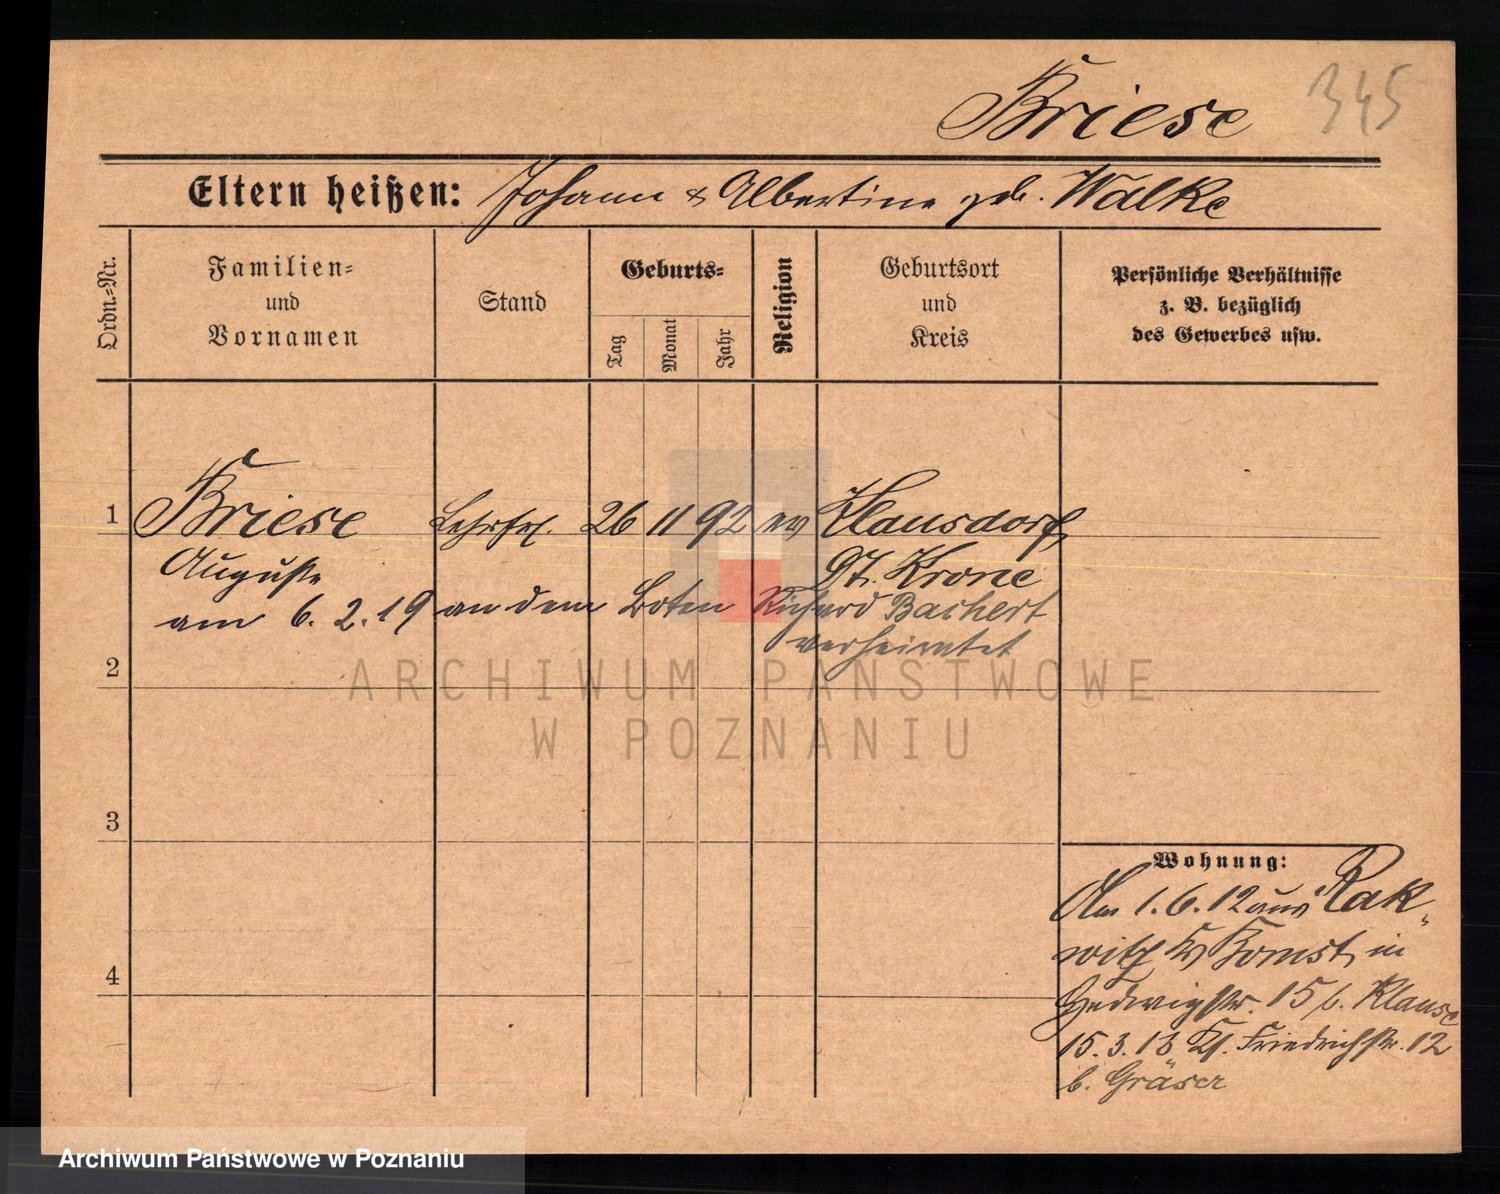 Briese 345
Eltern heißen: Johann & Albertine geb. Walke
Ordn.-Nr.
Familien-
und
Vornamen
Stand
Geburts-
Tag
Monat
Jahr
Religion
Geburtsort
und
Kreis
Persönliche Verhältnisse
z. B. bezüglich
des Gewerbes usw.
1 Briese Lehrfrl. 26 11 92 ev Klausdorf,
Auguste Dt. Krone
am 6.2.19 an dem Boten Richard Bachert
verheiratet
2
3
4
Wohnung:
Am 1.6.12 aus Rak-
witz Kr Bomst, in
Hedwigstr. 15 b. Klause
15.3.18 Kl. Friedrichstr. 12
b. Gräser
ARCHIWUM PAŃSTWOWE
W POZNANIU
Archiwum Państwowe w Poznaniu